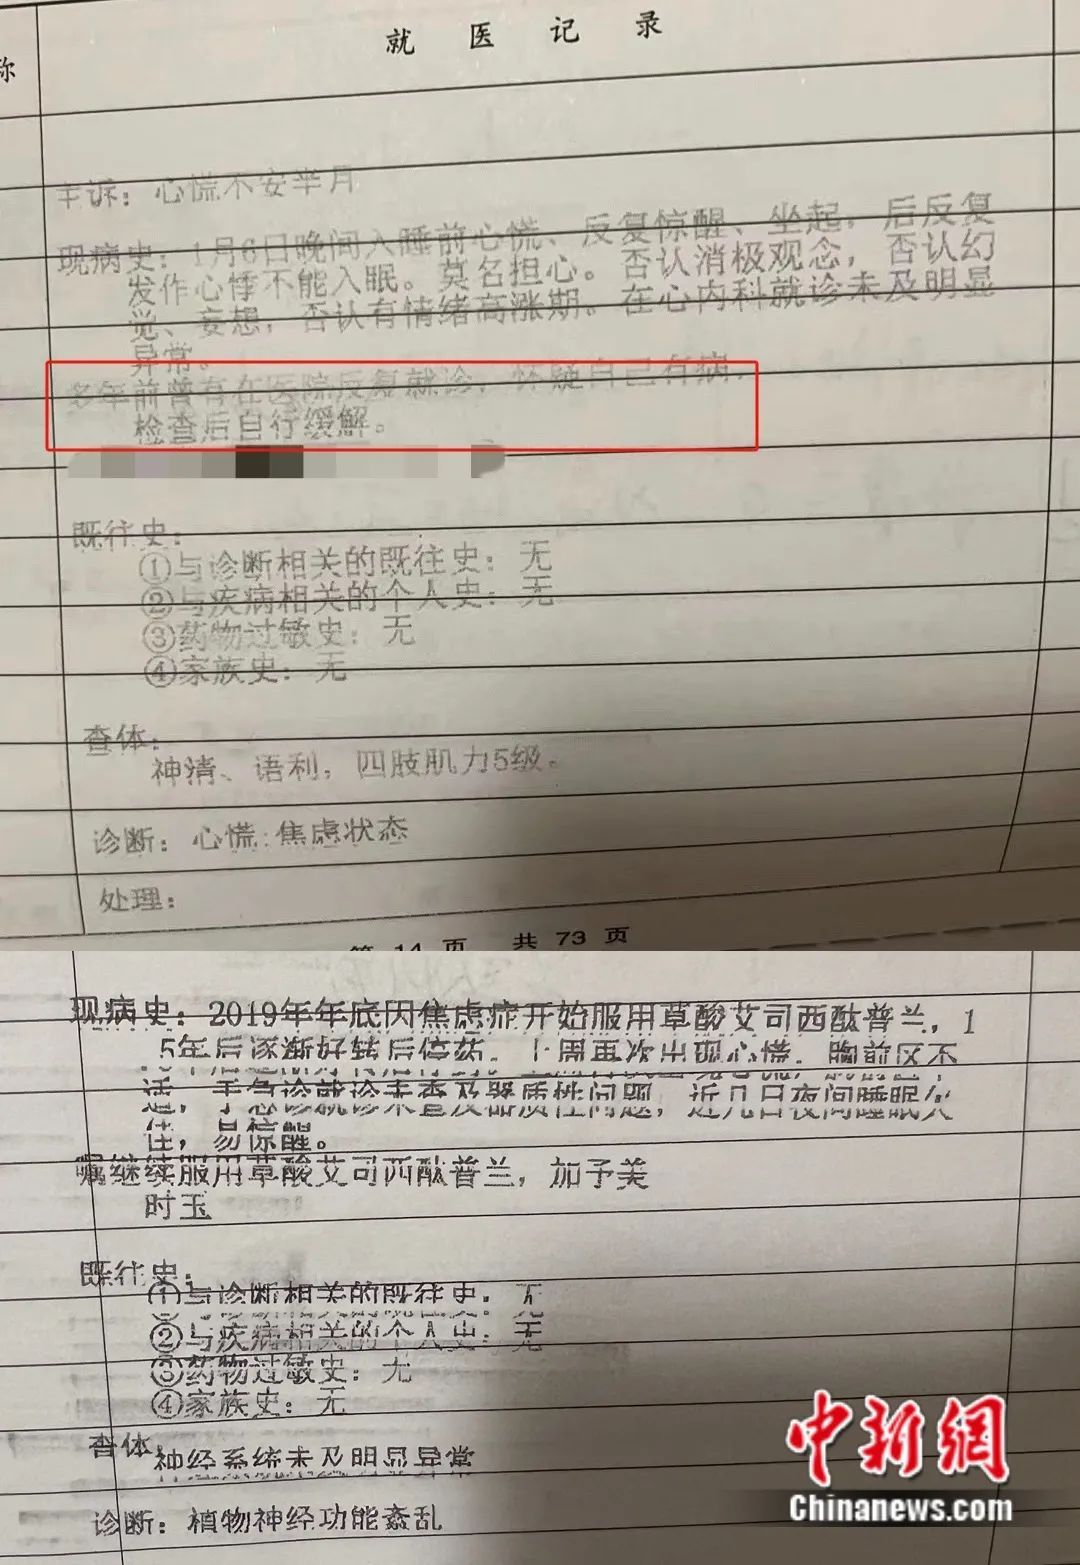 就医记录
称
主诉：心慌不安半月
现病史：1月6日晚间入睡前心慌、反复惊醒、坐起，后反复
发作心悸不能入眠。莫名担心。否认消极观念，否认幻
觉、妄想，否认有情绪高涨期。在心内科就诊未及明显
异常。
多年前曾有在医院反复就诊，怀疑自己有病，
检查后自行缓解。
既往史：
①与诊断相关的既往史：无
②与疾病相关的个人史：无
③药物过敏史：无
④家族史：无
查体：
神清、语利，四肢肌力5级。
诊断：心慌：焦虑状态
处理：
第 14 页 共 73 页
现病史：2019年年底因焦虑症开始服用草酸艾司西酞普兰，1
.5年后逐渐好转后停药。上周再次出现心慌，胸前区不
适，于急诊就诊未查及器质性问题，近几日夜间睡眠欠
佳，易惊醒。
嘱继续服用草酸艾司西酞普兰，加予美
时玉
既往史：
①与诊断相关的既往史：无
②与疾病相关的个人史：无
③药物过敏史：无
④家族史：无
查体：
神经系统未及明显异常
诊断：植物神经功能紊乱
中新網
Chinanews.com